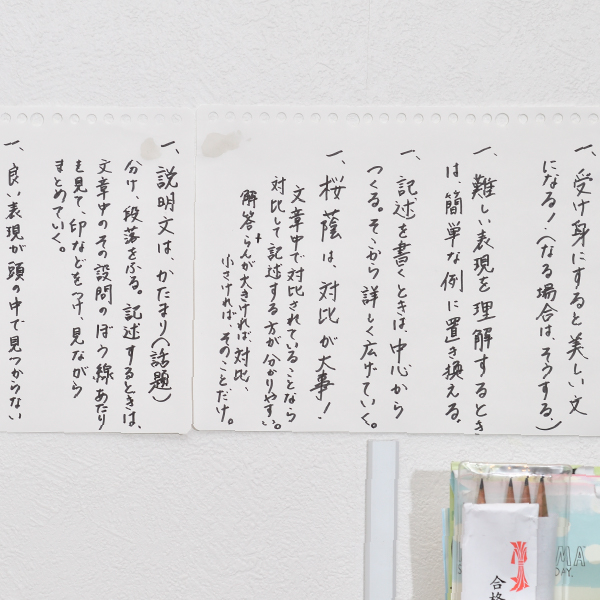 一、受け身にすると美しい文
になる！（なる場合は、そうする。）
一、難しい表現を理解するとき
は、簡単な例に置き換える。
一、記述を書くときは、中心から
つくる。そこから詳しく広げていく。
一、桜蔭は、対比が大事！
文章中で対比されていることなら
対比して記述する方が分かりやすい。
解答らんが大きければ、対比、
小さければ、そのことだけ。
一、説明文は、かたまり（話題）
分け、段落をふる。記述するときは、
文章中のその設問のぼう線あたり
を見て、印などをつけ、見ながら
まとめていく。
一、良い表現が頭の中で見つからない
合格
MA
DAY